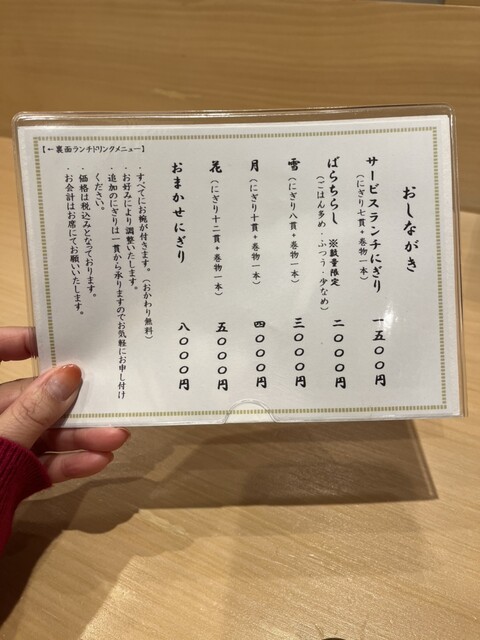 おしながき
サービスランチにぎり 一五〇〇円
（にぎり七貫+巻物一本）
ばらちらし ※数量限定 二〇〇〇円
（ごはん多め・ふつう・少なめ）
雪 三〇〇〇円
（にぎり八貫+巻物一本）
月 四〇〇〇円
（にぎり十貫+巻物一本）
花 五〇〇〇円
（にぎり十二貫+巻物一本）
おまかせにぎり 八〇〇〇円
・すべてにお椀が付きます。（おかわり無料）
・お好みにより調整いたします。
・追加のにぎりは一貫から承りますのでお気軽にお申し付け
ください。
・価格は税込みとなっております。
・お会計はお席にてお願いいたします。
【←裏面ランチドリンクメニュー】